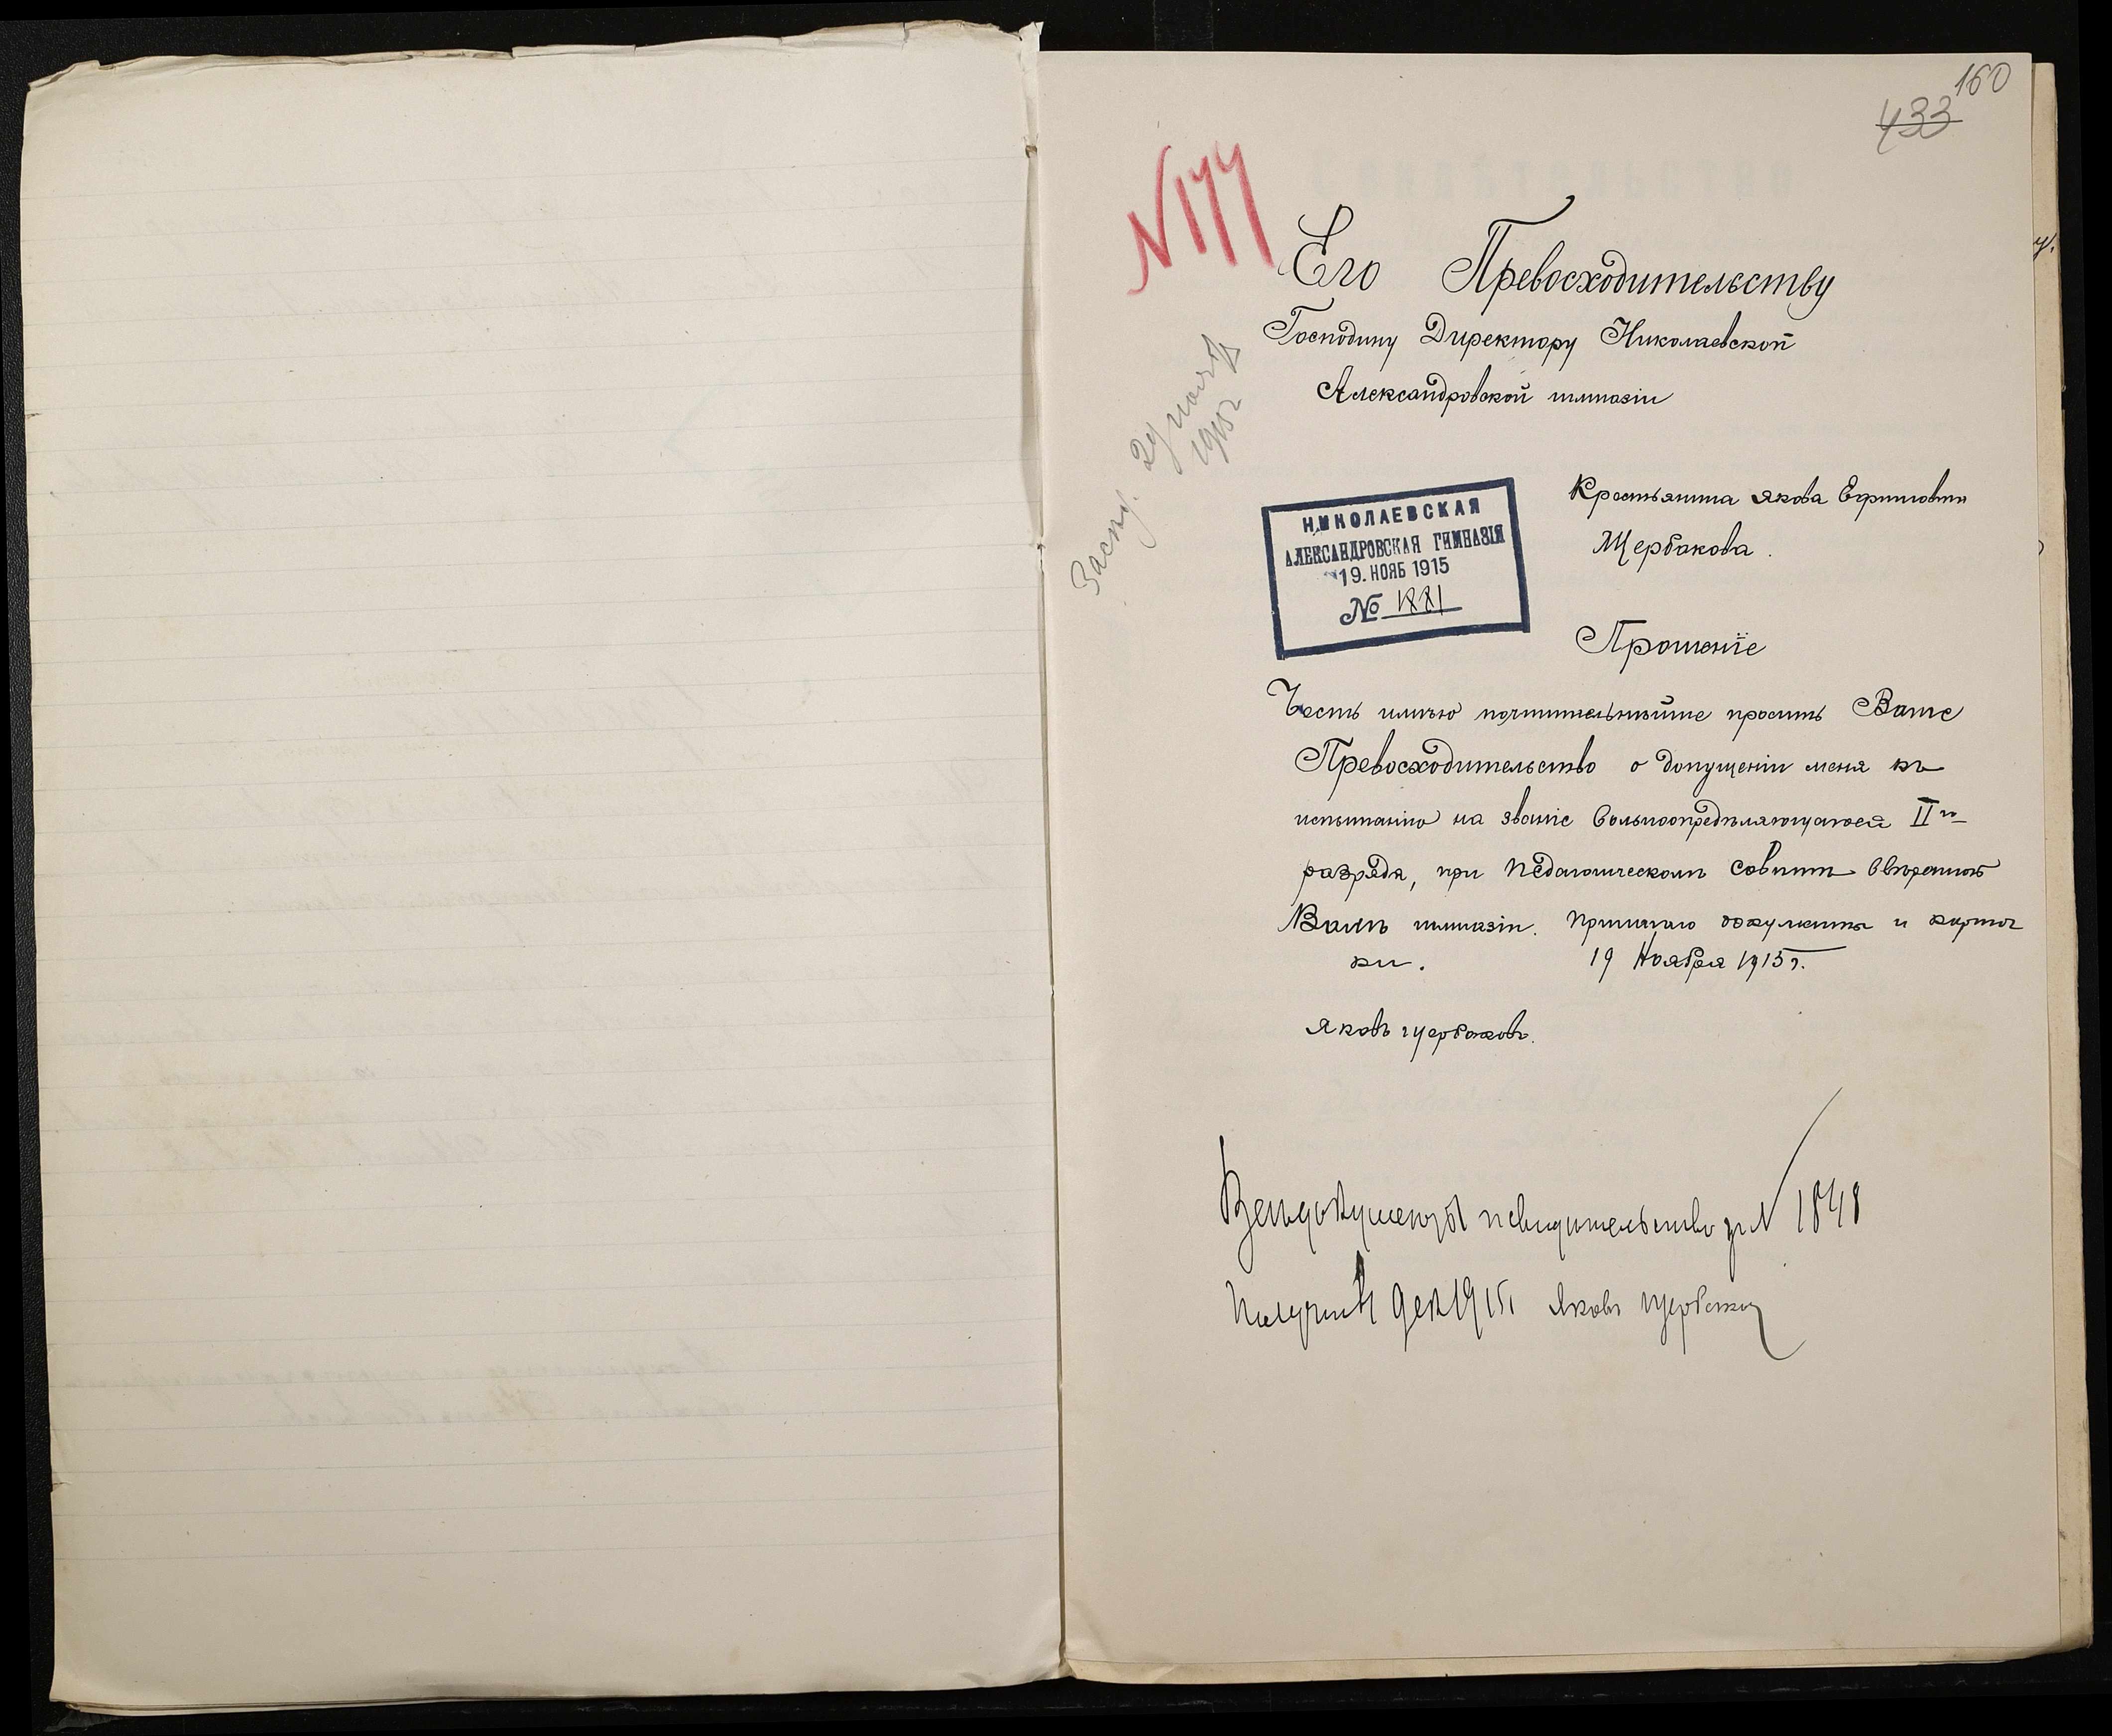 160
433
N 177
Его Превосходительству
Господину Директору Николаевской
Александровской гимназіи
29 ноября
1915 г
НИКОЛАЕВСКАЯ
АЛЕКСАНДРОВСКАЯ ГИМНАЗІЯ
19. НОЯБ 1915
№ 1881
Крестьянина Якова Ефимовича
Щербакова.
Прошеніе
Честь имѣю почтительнѣйше просить Ваше
Превосходительство о допущеніи меня къ
испытанію на званіе вольноопредѣляющагося IIго
разряда, при педагогическомъ совѣтѣ ввѣренной
Вамъ гимназіи. Прилагаю документы и карточ
ки. 19 Ноября 1915 г.
Яковъ Щербаковъ.
документы и свидѣтельство за N 1848
Получилъ 9 дек 1915 Яковъ Щербаков